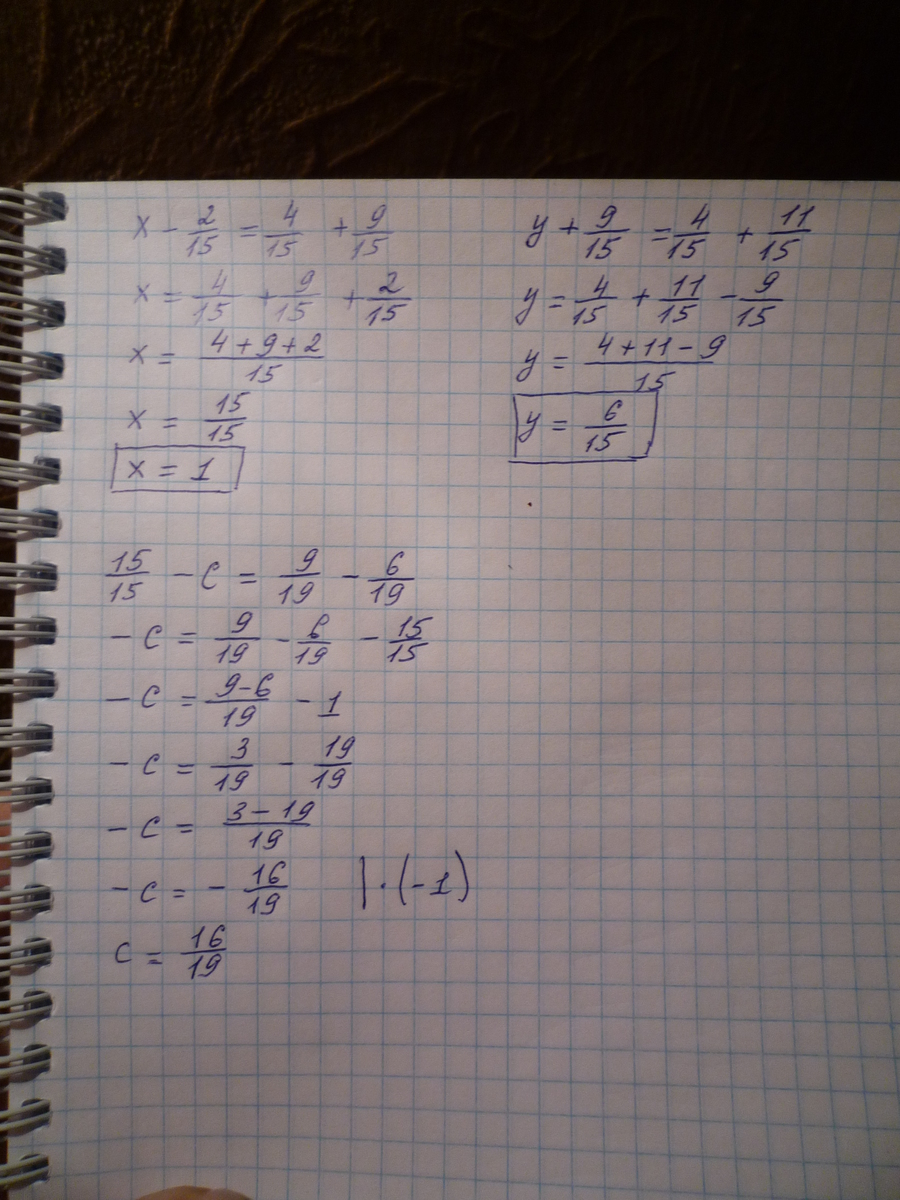 x - 2/15 = 4/15 + 9/15
x = 4/15 + 9/15 + 2/15
x = (4+9+2)/15
x = 15/15
x = 1
y + 9/15 = 4/15 + 11/15
y = 4/15 + 11/15 - 9/15
y = (4+11-9)/15
y = 6/15
15/15 - c = 9/19 - 6/19
-c = 9/19 - 6/19 - 15/15
-c = (9-6)/19 - 1
-c = 3/19 - 19/19
-c = (3-19)/19
-c = - 16/19 | · (-1)
c = 16/19